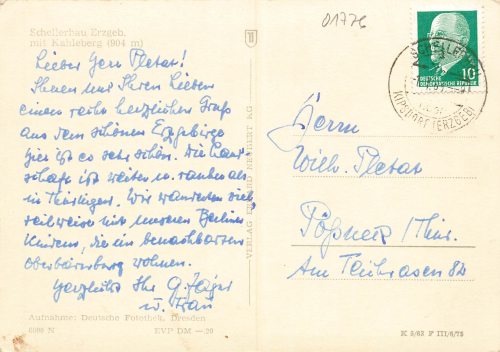 01776
Schellerhau Erzgeb.
mit Kahleberg (904 m)
Lieber Herr Pletat!
Ihnen und Ihren Lieben
einen recht herzlichen Gruß
aus dem schönen Erzgebirge
Hier ist es sehr schön. Die Land-
schaft ist weiter u. rauher als
in Thüringen. Wir wandern viel,
teilweise mit unseren Berliner
Kindern, die im benachbarten
Oberbärenburg wohnen.
Herzlichst Ihr G. Jäger
u. Frau
Aufnahme: Deutsche Fotothek, Dresden
N EVP DM —.20
VERLAG ERHARD NEUBERT KG
10
DEUTSCHE
DEMOKRATISCHE REPUBLIK
SCHELLERHAU
KIPSDORF (ERZGEB)
Herrn
Wilh. Pletat
Pößneck/Thür.
Am Teichrasen 82
K 2/63 F III/6/75